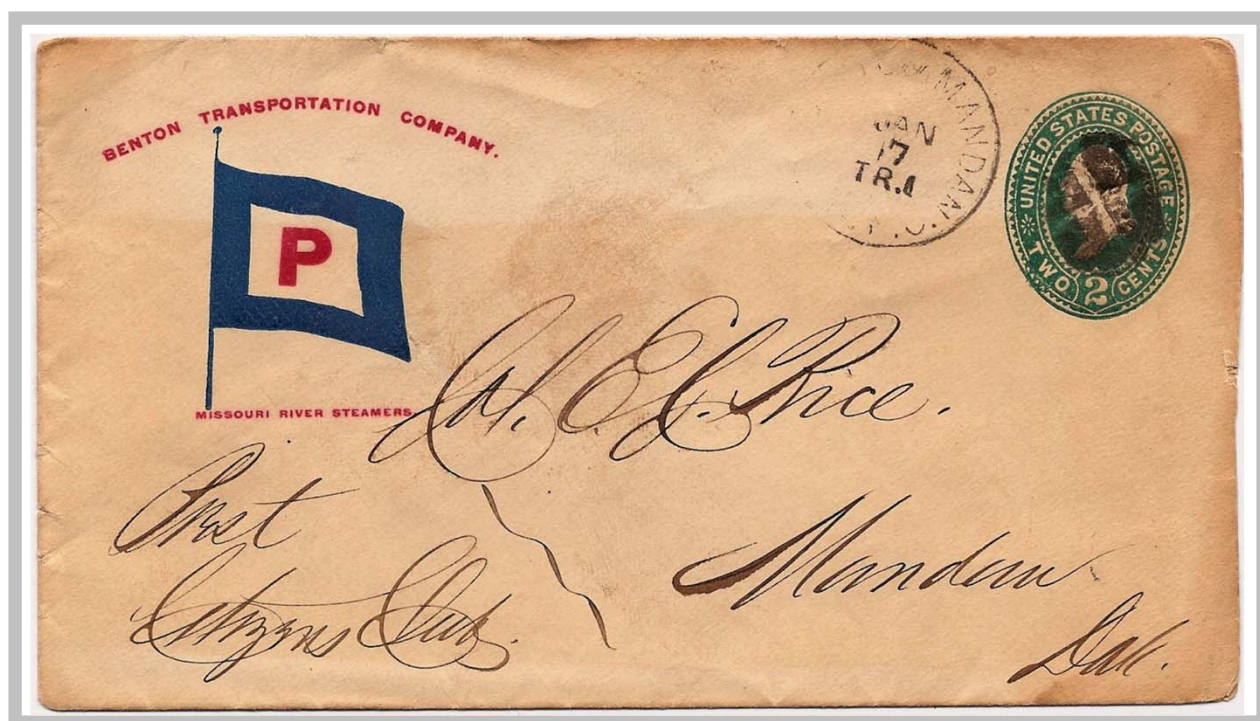 BENTON TRANSPORTATION COMPANY.
P
MISSOURI RIVER STEAMERS
MANDAN
JAN
17
TR.1
UNITED STATES POSTAGE
TWO 2 CENTS
Col. E. C. Rice.
Prest
Citizens Club.
Mandan
Dak.